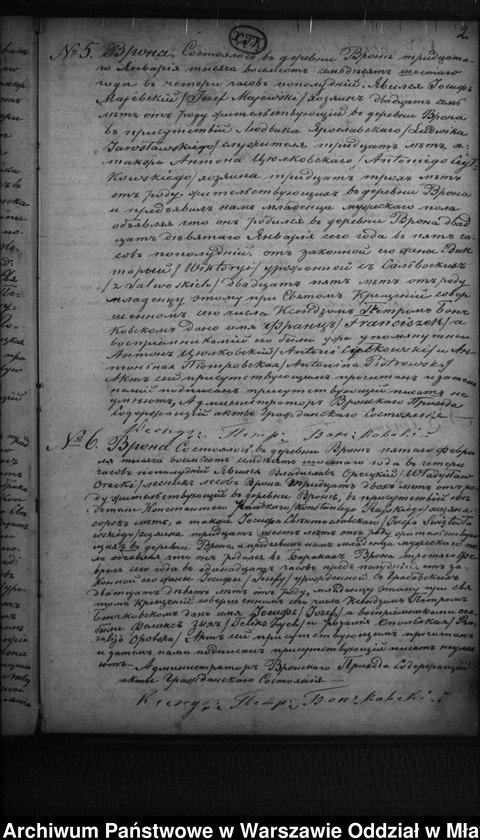 2
№5. Врона. Состоялось въ деревни Вронѣ тридцата-
го Января тысяча восемсотъ семьдесятъ шестого
года въ четыри часовъ пополудній. Явился Іосифъ
Маіевскій /Józef Majewski/ хозяинъ двадцать семь
лѣтъ отъ роду жительствующій въ деревни Врона
въ присутствіи Людвика Ярославскаго /Ludwika
Jarosławskiego/ служителя тридцать лѣтъ, а-
такоже Антона Цюлковскаго /Antoniego Ciuł-
kowskiego/ хозяина тридцать трохъ лѣтъ
отъ роду, жительствующихъ въ деревни Врона
и предъявилъ намъ младенца мужескаго пола
объявляя что онъ родился въ деревни Врона двад-
цать девятаго Января сего года въ пять ча-
совъ пополудній, отъ законной его жены Вик-
торыи /Wiktoryi/ урожонной съ Сальвоскихъ
/z Salwoskich/ двадцать пять лѣтъ отъ роду
младенцу этому при Святомъ Крещеніи совер-
шенномъ сего числа Ксендзомъ Петромъ Бонч-
ковскомъ дано имя Францъ /Franciszek/ а
воспріемниками его были уже упомянутый
Антонъ Цюлковскій /Antoni Ciułkowski/ и Ан-
тонина Піотровская /Antonina Piotrowska/
Актъ сей присутствующимъ прочитанъ и затемъ
нами подписанъ присутствующіи писать не
умеютъ, Администраторъ Вронскаго Прихода
Содержащій акты Гражданскаго Состоянія
Ксендз: Петр: Бончковскій
№6. Врона Состоялось въ деревни Вронѣ пятаго Февра-
ля тысяча восемсотъ семьдесятъ шостаго года въ четыри
часовъ пополудній Явился Владиславъ Орецкій /Władysław
Orecki/ лесникъ лесовъ Врона тридцать двохъ лѣтъ отъ ро-
ду жительствующій въ деревни Вронѣ, въ присутствіи сви-
детели Константего /Konstantego/ хозяина
сорокъ лѣтъ, а такоже Іосифа Святославскаго /Józefa Święto-
sławskiego/ хозяина тридцать шесть лѣтъ отъ роду жительствую-
щихъ въ деревни Врона, и предъявилъ намъ младенца мужескаго по-
ла объявляя что онъ родился въ Баракахъ Врона третаго Фе-
враля сего года въ одинадцать часовъ предъ полудній, отъ за-
конной его жены Іосифы /Józefy/ урожденной съ Грабовскихъ
двадцать девять лѣтъ отъ роду, младенцу этому при свя-
томъ Крещеніи совершенномъ сего числа Ксендзомъ Петромъ
Бончковскомъ дано имя Іосифъ /Józef/ а воспріемниками его
были Феликсъ /Feliks/ и Розалія /Ro-
zalija/ Актъ сей присутствующимъ прочитанъ
и затемъ нами подписанъ присутствующіи писать неуме-
ютъ. Администраторъ Вронскаго Прихода Содержащій
акты Гражданскаго Состоянія
Ксендз: Петр: Бончковскій
Archiwum Państwowe w Warszawie Oddział w Mła